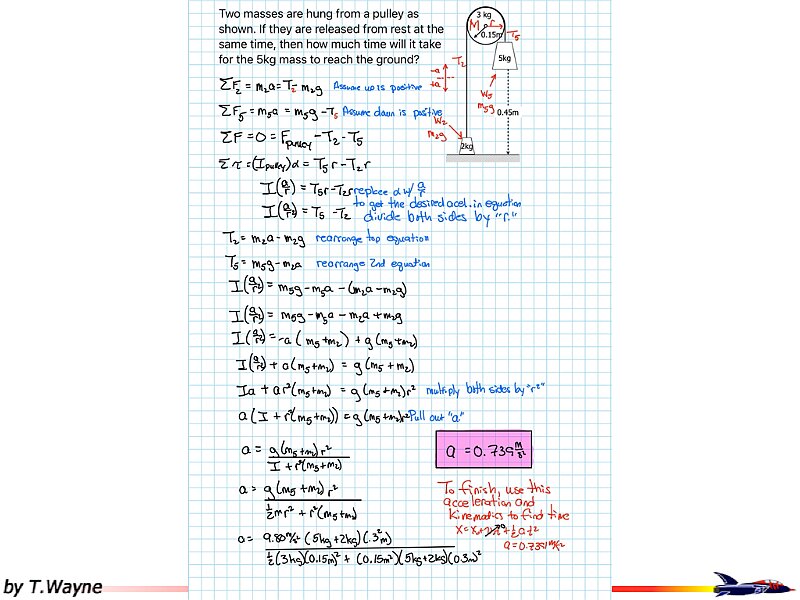 Two masses are hung from a pulley as
shown. If they are released from rest at the
same time, then how much time will it take
for the 5kg mass to reach the ground?
3 kg
M r
0.15m
T₅
T₂
5kg
-a
+a
W₅
m₅g
0.45m
W₂
m₂g
2kg
ΣF₂ = m₂a = T₂ - m₂g Assume up is positive
ΣF₅ = m₅a = m₅g - T₅ Assume down is positive
ΣF = 0 = Fpulley - T₂ - T₅
Στ = (Ipulley)α = T₅r - T₂r
I(a/r) = T₅r - T₂r replace α w/ a/r
to get the desired accel. in equation
I(a/r²) = T₅ - T₂ divide both sides by "r."
T₂ = m₂a - m₂g rearrange top equation
T₅ = m₅g - m₂a rearrange 2nd equation
I(a/r²) = m₅g - m₅a - (m₂a - m₂g)
I(a/r²) = m₅g - m₅a - m₂a + m₂g
I(a/r²) = -a(m₅+m₂) + g(m₅+m₂)
I(a/r²) + a(m₅+m₂) = g(m₅+m₂)
Ia + ar²(m₅+m₂) = g(m₅+m₂)r² multiply both sides by "r²"
a(I + r²(m₅+m₂)) = g(m₅+m₂)r² Pull out "a"
a = g(m₅+m₂)r² / I + r²(m₅+m₂)
a = 0.739 m/s²
a = g(m₅+m₂)r² / ½mr² + r²(m₅+m₂)
To finish, use this
acceleration and
kinematics to find time
x = x₀ + v₀t + ½at²
a = 0.739 m/s²
a = 9.80 m/s² (5kg+2kg)(.3²m) / ½(3kg)(0.15m)² + (0.15m²)(5kg+2kg)(0.3m)²
by T.Wayne